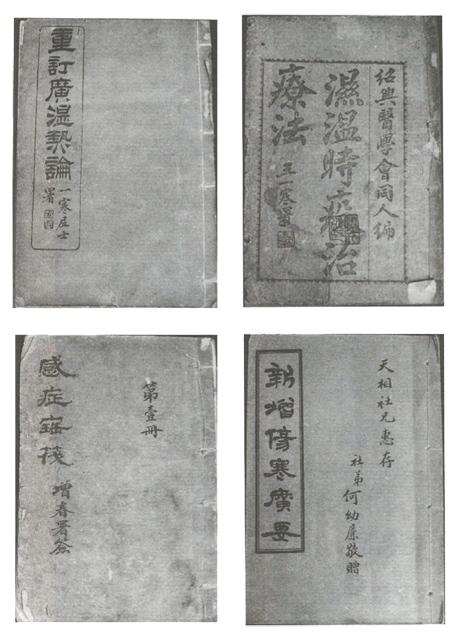 重訂廣温熱論
一寒居士
署
紹興醫學會同人編
濕温時疫治
療法
王一寒署
第壹冊
感症寶筏
增春署簽
天相社兄惠存
社弟何幼廉敬贈
新增傷寒廣要